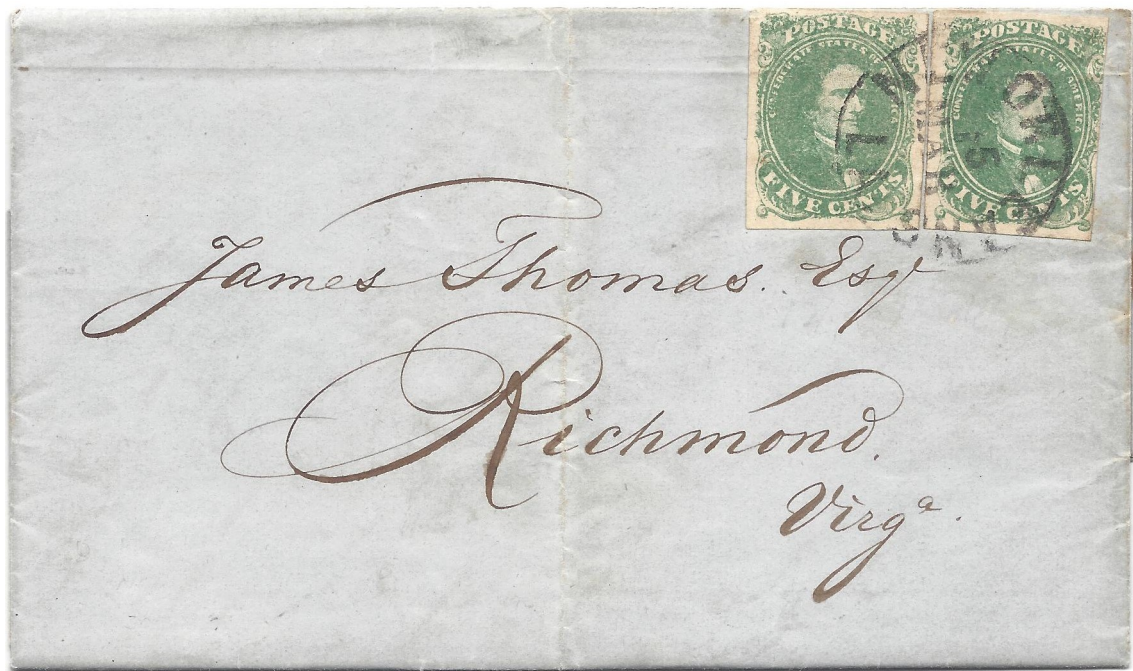 POSTAGE
CONFEDERATE STATES OF AMERICA
FIVE CENTS
POSTAGE
CONFEDERATE STATES OF AMERICA
FIVE CENTS
15
James Thomas. Esqr
Richmond.
Virga.